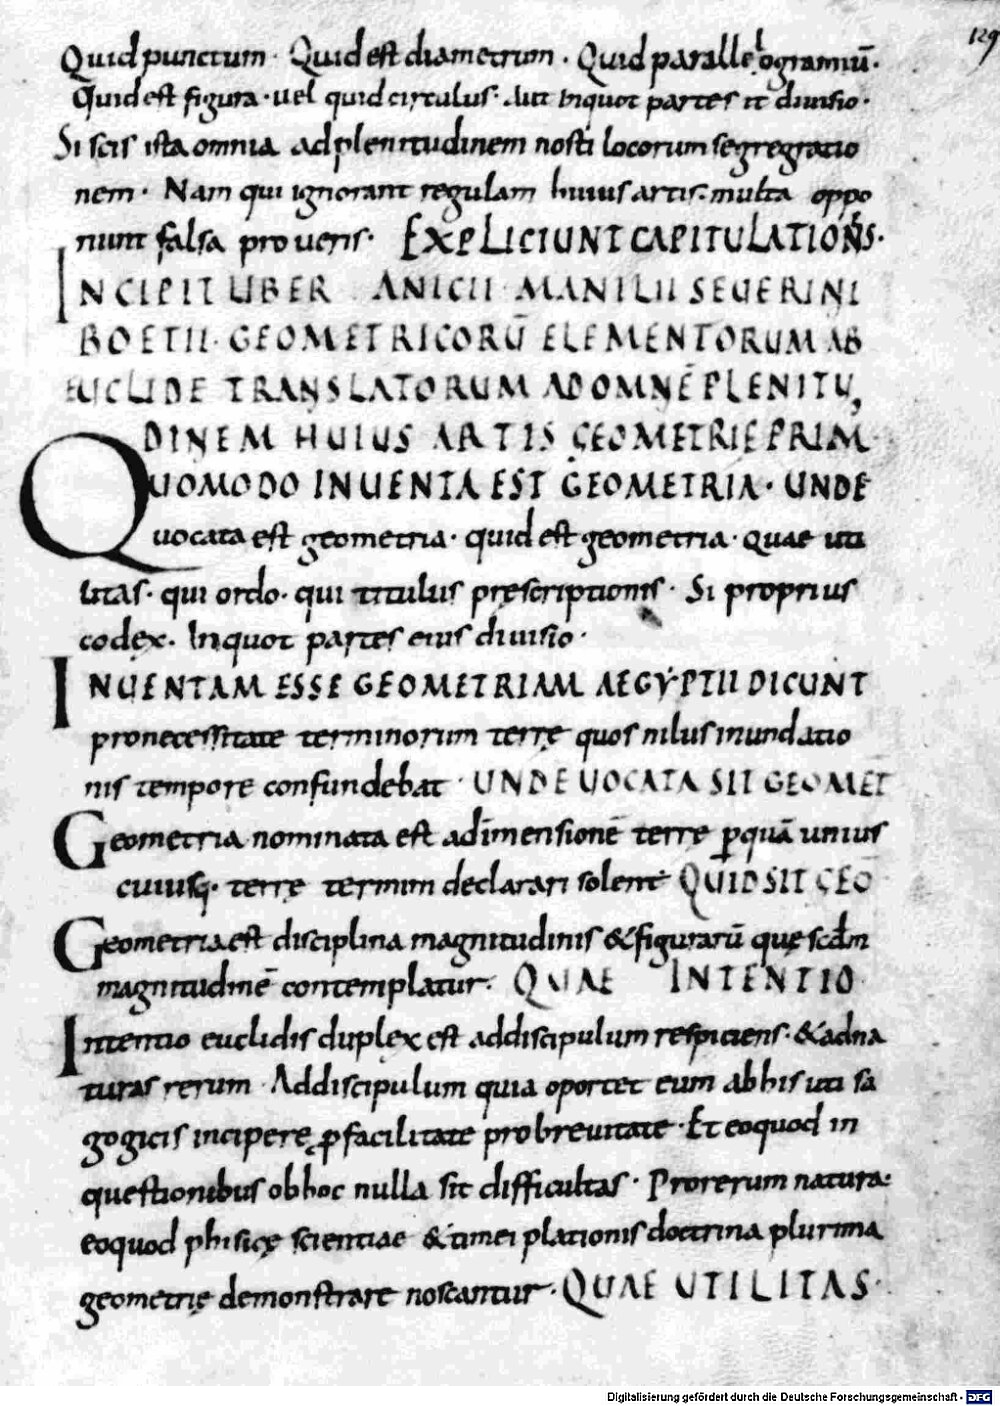 129
Quid punctum · Quid est diametrum · Quid parallelogramũ ·
Quid est figura · uel quid circulus · Aut Inquot partes it diuisio ·
Si scis ista omnia ad plenitudinem nosti locorum segregatio
nem · Nam qui ignorant regulam huius artis · multa oppo
nunt falsa pro ueris · EXPLICIUNT CAPITULATIONS ·
INCIPIT LIBER ANICII MANILII SEUERINI
BOETII · GEOMETRICORŨ ELEMENTORUM AB
EUCLIDE TRANSLATORUM AD OMNĒ PLENITU
DINEM HUIUS ARTIS GEOMETRIE PRIM
QUOMODO INUENTA EST GEOMETRIA · UNDE
uocata est geometria · quid est geometria · quae uti
litas · qui ordo · qui titulus pręscriptionis · Si proprius
codex · Inquot partes eius diuisio ·
INUENTAM ESSE GEOMETRIAM AEGYPTII DICUNT
pro necessitate terminorum terrę quos nilus inundatio
nis tempore confundebat · UNDE UOCATA SIT GEOMET
Geometria nominata est adimensionē terrę ꝑ quā unius
cuiusq; terrę termini declarari solent QUID SIT GEO
Geometria est disciplina magnitudinis & figurarũ quę scdm
magnitudinē contemplatur · QUAE INTENTIO
Intentio euclidis duplex est ad discipulum respiciens · & ad na
turas rerum · Ad discipulum quia oportet eum ab his uti sa
gogicis incipere ꝑ facilitate pro breuitate · Et eo quod in
questionibus ob hoc nulla sit difficultas · Pro rerum natura ·
eo quod phisicę scientiae & timei plationis doctrina plurima
geometrię demonstrare noscantur · QUAE UTILITAS ·
Digitalisierung gefördert durch die Deutsche Forschungsgemeinschaft - DFG